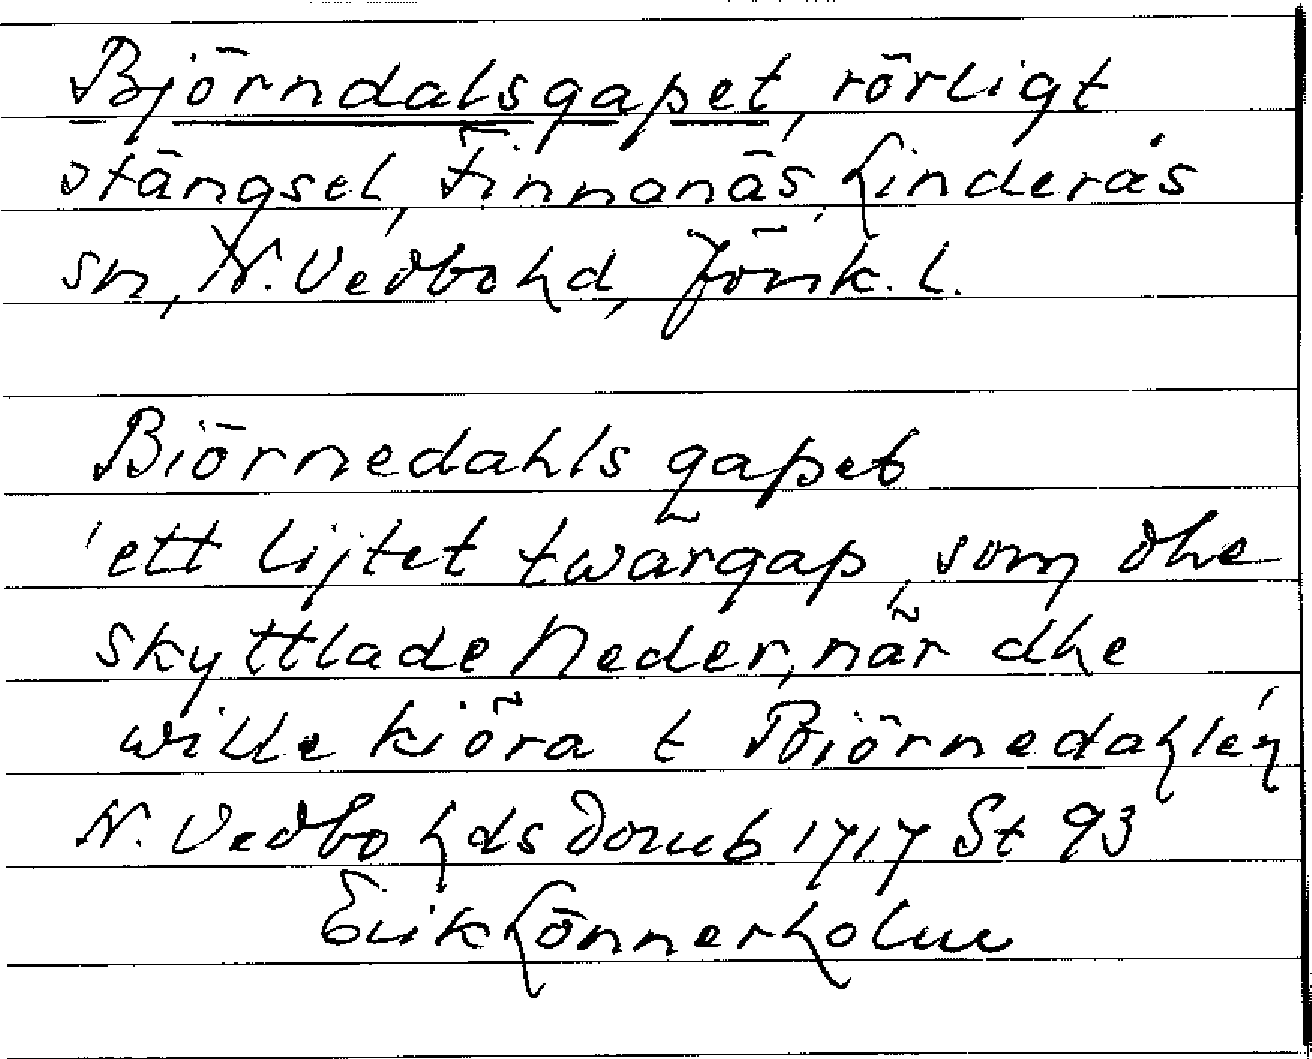 Björndalsgapet, rörligt
stängsel, Finnanäs, Linderås
sn, N. Vedbo hd, Jönk. l.
Biörnedahls gapet
'ett lijtet twärgap, som dhe
skyttlade Neder, när dhe
wille kiöra t Biörnedahlen'
N. Vedbo hds Domb 1717 St 93
Erik Lönnerholm